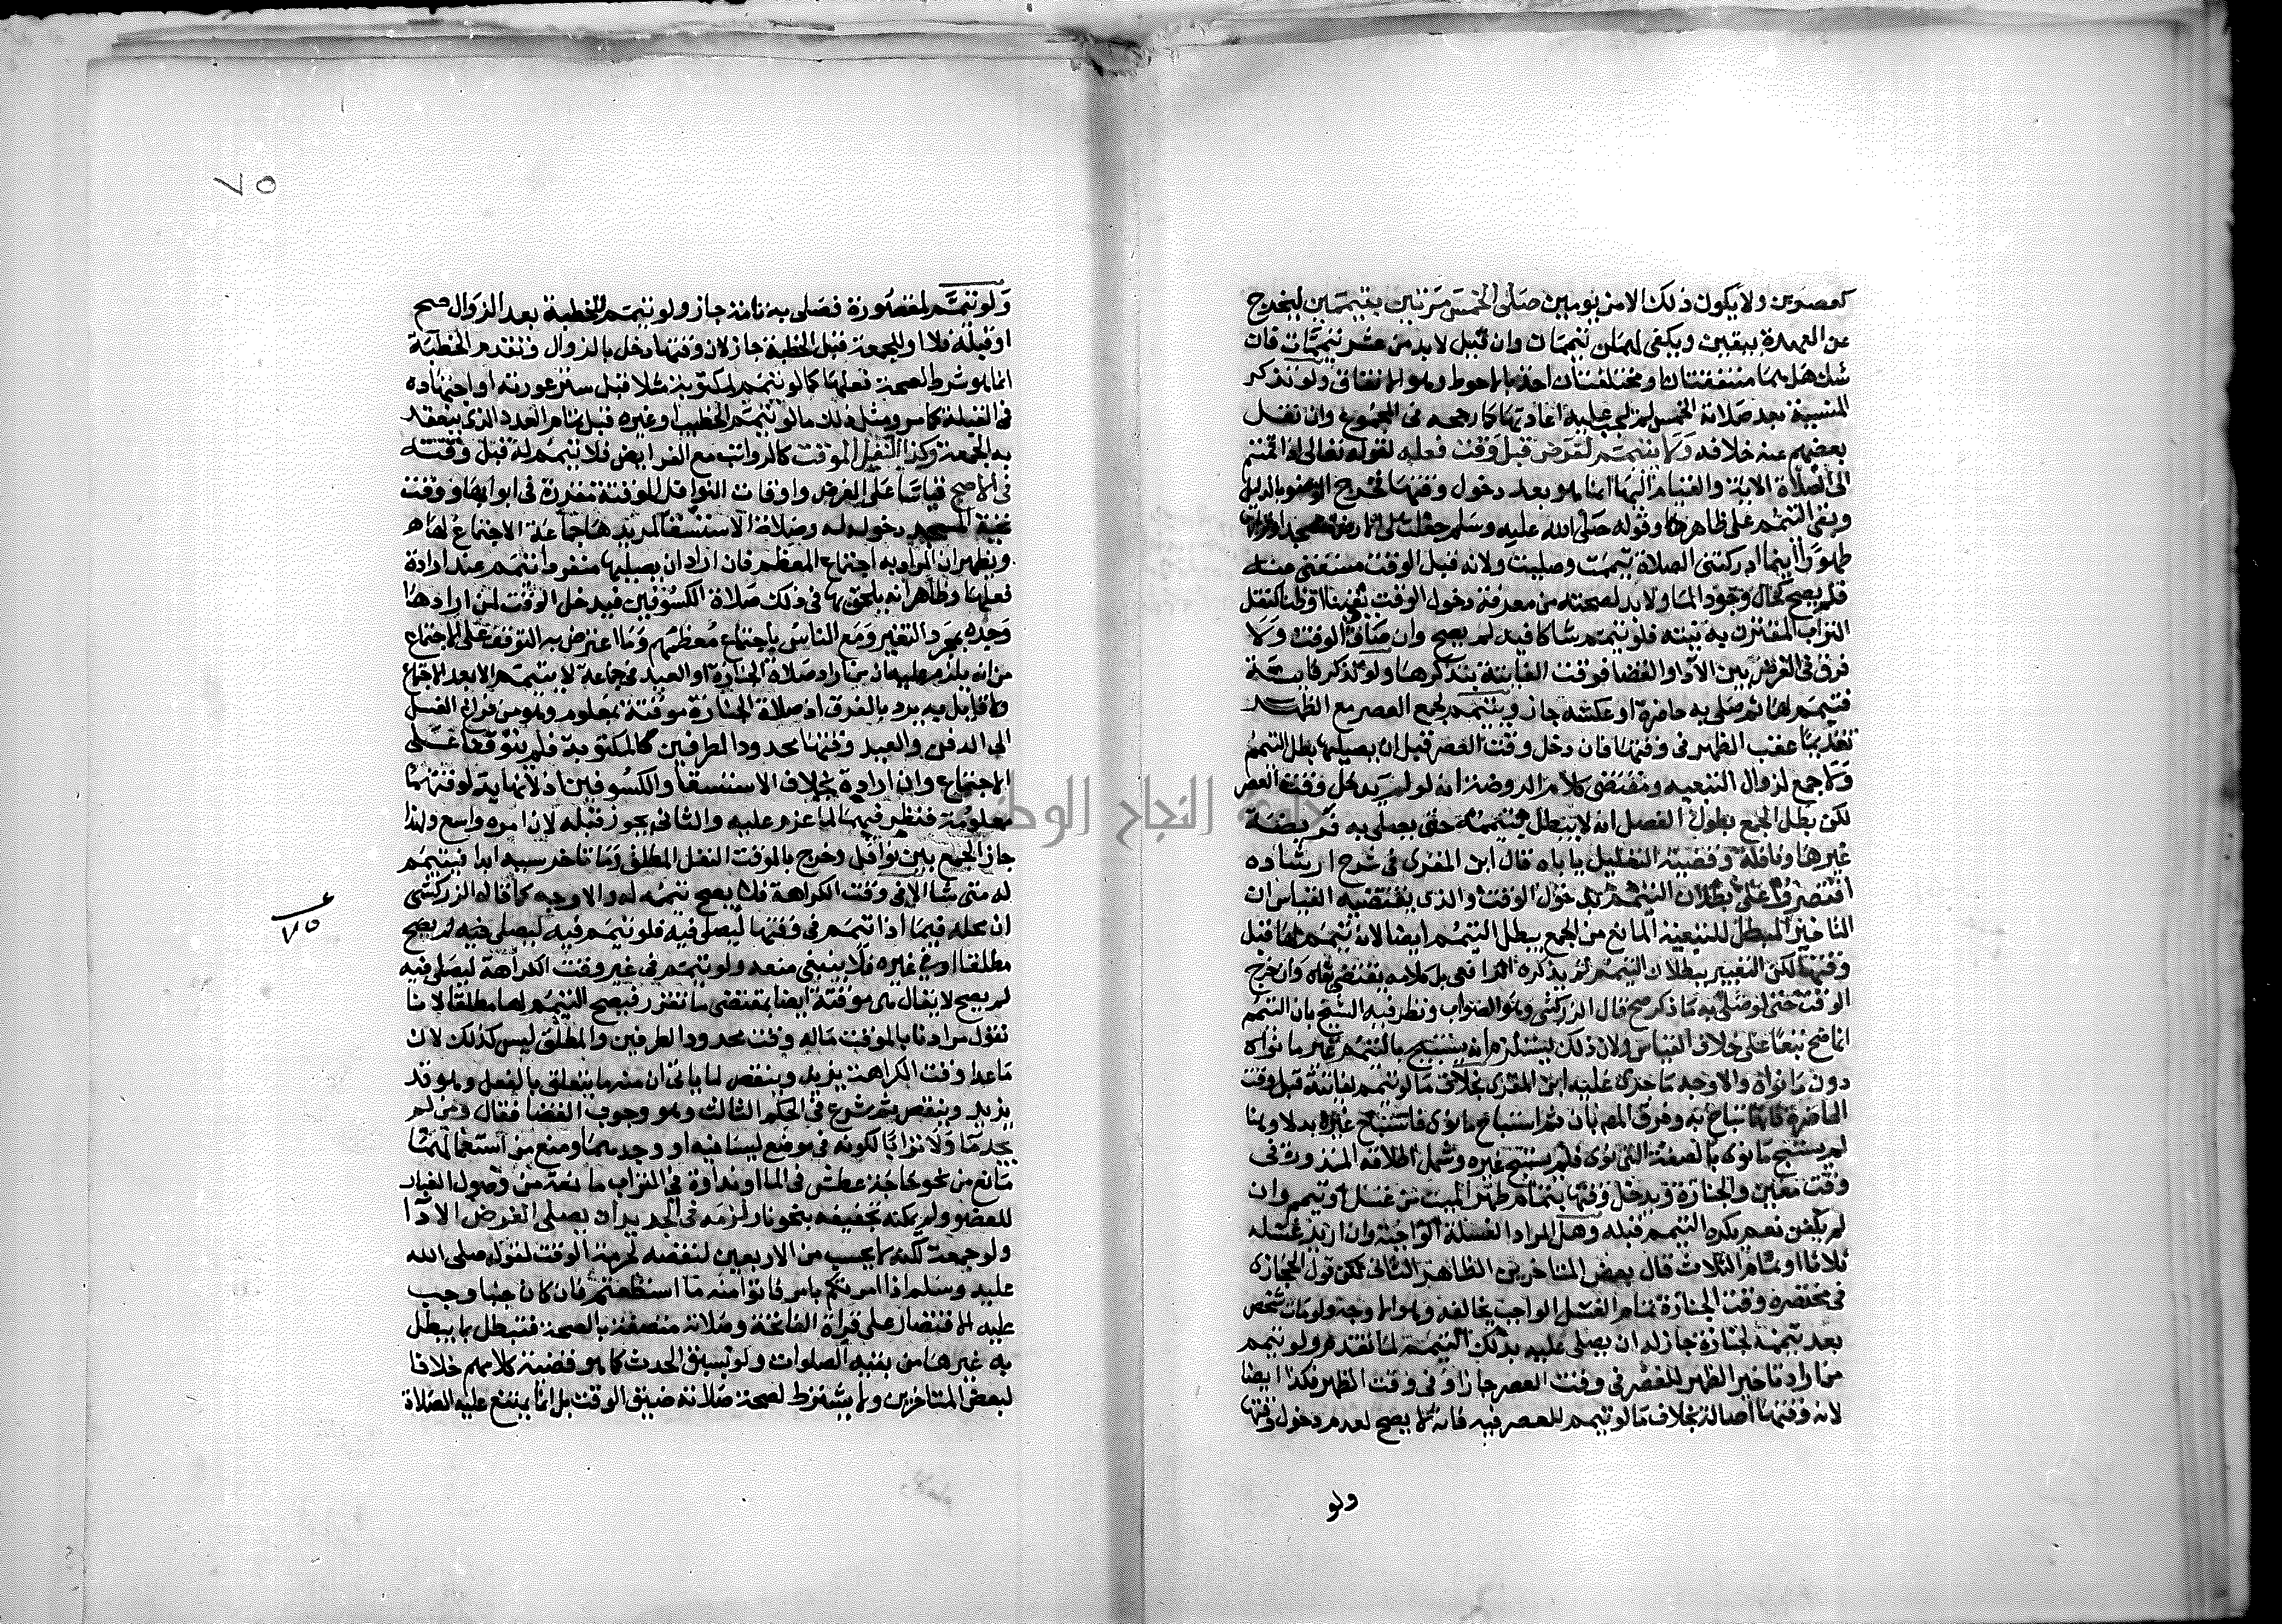 كعصرين ولا يكون ذلك الا من يومين صلى الخمس مرتين بتيممين ليخرج
عن العهدة بيقين ويكفي لهما تيممات وان قيل لا بد من عشر تيممات فان
شك هل هما متفقتان او مختلفتان اخذ بالاحوط وهو الاتفاق ولو تذكر
المنسية بعد صلاته الخمس لم تجب عليه اعادتها كما رجحه في المجموع وان نقل
بعضهم عنه خلافه ولا يتيمم لفرض قبل وقت فعله لقوله تعالى اذا قمتم
الى الصلاة الاية والقيام اليها انما هو بعد دخول وقتها فخرج الوضوء بالدليل
وبقي التيمم على ظاهرها وقوله صلى الله عليه وسلم جعلت لي الارض مسجدا وترابها
طهورا اينما ادركتني الصلاة تيممت وصليت ولانه قبل الوقت مستغنى عنه
فلم يصح كحال وجود الماء ولا بد لصحته من معرفة دخول الوقت يقينا او ظنا لنقل
التراب المقترن به نيته فلو تيمم شاكا فيه لم يصح وان صادف الوقت ولا
فرق في الفرض بين الادا والقضا فوقت الفايتة بتذكرها ولو تذكر فايتة
فتيمم لها ثم صلى به حاضرة او عكسه جاز ويتيمم لجمع العصر مع الظهر
تقديما عقب الظهر في وقتها فان دخل وقت العصر قبل ان يصليها بطل التيمم
ولا جمع لزوال التبعية ومقتضى كلام الروضة انه لو لم يدخل وقت العصر
لكن بطل الجمع بطول الفصل انه لا يبطل تيممه حتى يصلي به فريضة
غيرها ونافلة وقضية التعليل ياباه قال ابن المقري في شرح ارشاده
اقتصروا على بطلان التيمم بدخول الوقت والذي يقتضيه القياس ان
التاخير المبطل للتبعية المانع من الجمع يبطل التيمم ايضا لانه تيمم لها قبل
وقتها لكن التعبير ببطلان التيمم لم يذكره الرافعي بل كلامه يقتضي بقاه وان خرج
الوقت حتى لو صلى به ما ذكر صح قال الزركشي وهو الصواب ونظر فيه الشيخ بان التيمم
انما صح تبعا على خلاف القياس ولان ذلك يستلزم انه يستبيح بالتيمم غير ما نواه
دون ما نواه والاوجه ما جرى عليه ابن المقري بخلاف ما لو تيمم لفايتة قبل وقت
الحاضرة فانها تباح به وفرق المص بان ثم استباح ما نوى فاستباح غيره بدلا وهنا
لم يستبح ما نوى بالصفة التي نوى فلم يستبح غيره وشمل اطلاقه المنذورة في
وقت معين والجنازة ويدخل وقتها بتمام طهر الميت من غسل او تيمم وان
لم يكفن نعم يكره التيمم قبله وهل المراد الغسلة الواجبة وان اريد غسله
ثلاثا او تمام الثلاث قال بعض المتاخرين الظاهر الثاني لكن قول الحجازي
في مختصره وقت الجنازة تمام الغسل الواجب يخالفه وهو الاوجه ولو مات شخص
بعد تيممه لجنازة جاز له ان يصلي عليه بذلك التيمم لما تقدم ولو تيمم
من اراد تاخير الظهر للعصر في وقت العصر جاز او في وقت الظهر فكذا ايضا
لانه وقتها اصالة بخلاف ما لو تيمم للعصر فيه فانه لا يصح لعدم دخول وقتها
ولو
٧٥
ولو تيمم لمقصورة فصلى به تامة جاز ولو تيمم للخطبة بعد الزوال صح
او قبله فلا او للجمعة قبل الخطبة جاز لان وقتها دخل بالزوال وتقدم الخطبة
انما هو شرط لصحة فعلها كما لو تيمم لمكتوبة مثلا قبل ستر عورته او اجتهاده
في القبلة كما مر ومثل ذلك ما لو تيمم الخطيب او غيره قبل تمام العدد الذي ينعقد
به الجمعة وكذا النفل الموقت كالرواتب مع الفرايض فلا تيمم له قبل وقته
في الاصح قياسا على الفرض واوقات النوافل الموقتة مقررة في ابوابها ووقت
تحية المسجد دخوله له وصلاة الاستسقا لمريدها جماعة الاجتماع لها م ر
ويظهر ان المراد به اجتماع المعظم فان اراد ان يصليها منفردا تيمم عند ارادة
فعلها وظاهر انه يلحق بها في ذلك صلاة الكسوفين فيدخل الوقت لمن ارادها
وحده بمجرد التغير ومع الناس باجتماع معظمهم وما اعترض به التوقف على الاجتماع
من انه يلزم عليه ان من اراد صلاة الجنازة او العيد في جماعة لا يتيمم الا بعد الاجتماع
ولا قايل به يرد بالفرق اذ صلاة الجنازة موقتة بمعلوم وهو من فراغ الغسل
الى الدفن والعيد وقتها محدود الطرفين كالمكتوبة فلم يتوقفا على
الاجتماع وان اراده بخلاف الاستسقا والكسوفين اذ لا نهاية لوقتهما
معلومة فنظر فيهما لما عزم عليه والثاني يجوز قبله لان امره واسع ولهذا
جاز الجمع بين نوافل وخرج بالموقت النفل المطلق وما تاخر سببه ابدا فيتيمم
له متى شا الا في وقت الكراهة فلا يصح تيممه له والاوجه كما قاله الزركشي
ان محله فيما اذا تيمم في وقتها ليصلي فيه فلو تيمم فيه ليصلي فيه لم يصح
مطلقا او في غيره فلا ينبغي منعه ولو تيمم في غير وقت الكراهة ليصلي فيه
لم يصح لا يقال هي موقتة ايضا بمقتضى ما تقرر فيصح التيمم لها مطلقا لانا
نقول مرادنا بالموقت ماله وقت محدود الطرفين والمطلق ليس كذلك لان
ما عدا وقت الكراهة يزيد وينقص لما ياتي ان منها يتعلق بالفعل وهو قد
يزيد وينقص ثم شرع في الحكم الثالث وهو وجوب القضا فقال ومن لم
يجد ما ولا ترابا لكونه في موضع ليسا فيه او وجدهما ومنع من استعمالهما
مانع من نحو حاجة عطش في الما او نداوة في التراب مانعة من وصول الغبار
للعضو ولم يمكنه تجفيفه بنحو نار لزمه في الجديد ان يصلي الفرض الادا
ولو جمعة لكنه لا يحسب من الاربعين لنقصه لحرمة الوقت لقوله صلى الله
عليه وسلم اذا امرتكم بامر فاتوا منه ما استطعتم فان كان جنبا وجب
عليه الاقتصار على قراة الفاتحة وصلاته متصفة بالصحة فتبطل بما يبطل
به غيرها من بقية الصلوات ولو بسبق الحدث كما هو قضية كلامهم خلافا
لبعض المتاخرين ولا يشترط لصحة صلاته ضيق الوقت بل انما يمتنع عليه الصلاة
٧٥